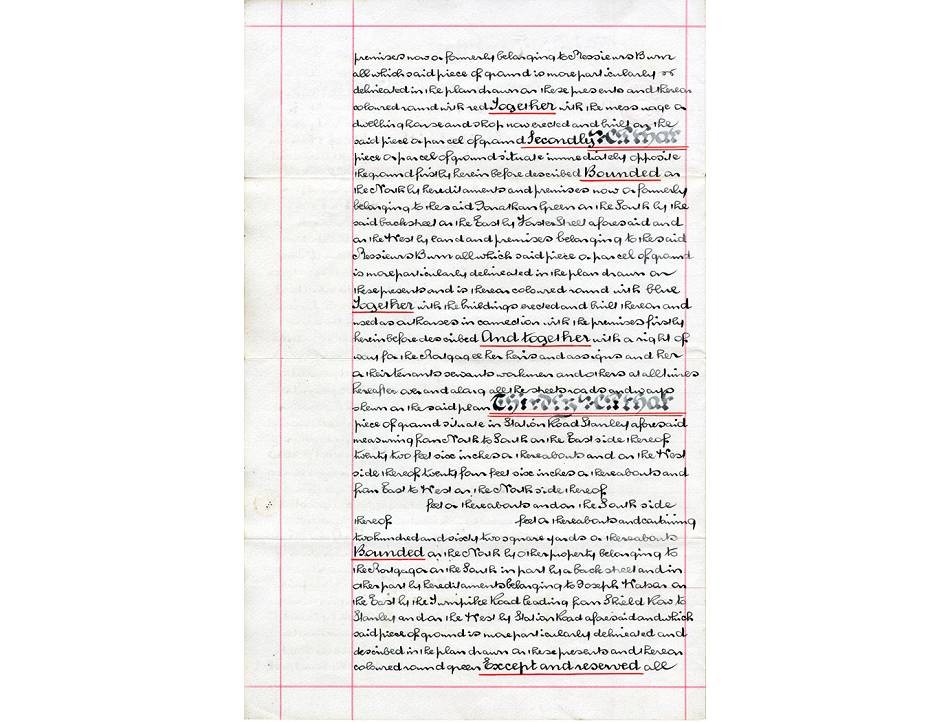 premises now or formerly belonging to Messieurs Burn
all which said piece of ground is more particularly
delineated in the plan drawn on these presents and thereon
coloured round with red Together with the messuage or
dwellinghouse and shop now erected and built on the
said piece or parcel of ground Secondly All that
piece or parcel of ground situate immediately opposite
the ground firstly herein before described Bounded on
the North by hereditaments and premises now or formerly
belonging to the said Jonathan Green on the South by the
said back street on the East by Foster Street aforesaid and
on the West by land and premises belonging to the said
Messieurs Burn all which said piece or parcel of ground
is more particularly delineated in the plan drawn on
these presents and is thereon coloured round with blue
Together with the buildings erected and built thereon and
used as outhouses in connection with the premises firstly
herein before described And together with a right of
way for the Mortgagee her heirs and assigns and her
or their tenants servants workmen and others at all times
hereafter over and along all the streets roads and ways
shewn on the said plan Thirdly All that
piece of ground situate in Station Road Stanley aforesaid
measuring from North to South on the East side thereof
twenty two feet six inches or thereabouts and on the West
side thereof twenty four feet six inches or thereabouts and
from East to West on the North side thereof
feet or thereabouts and on the South side
thereof feet or thereabouts and containing
two hundred and sixty two square yards or thereabouts
Bounded on the North by other property belonging to
the Mortgagor on the South in part by a back street and in
other part by hereditaments belonging to Joseph Watson on
the East by the Turnpike Road leading from Shield Row to
Stanley and on the West by Station Road aforesaid and which
said piece of ground is more particularly delineated and
described in the plan drawn on these presents and thereon
coloured round green Except and reserved all